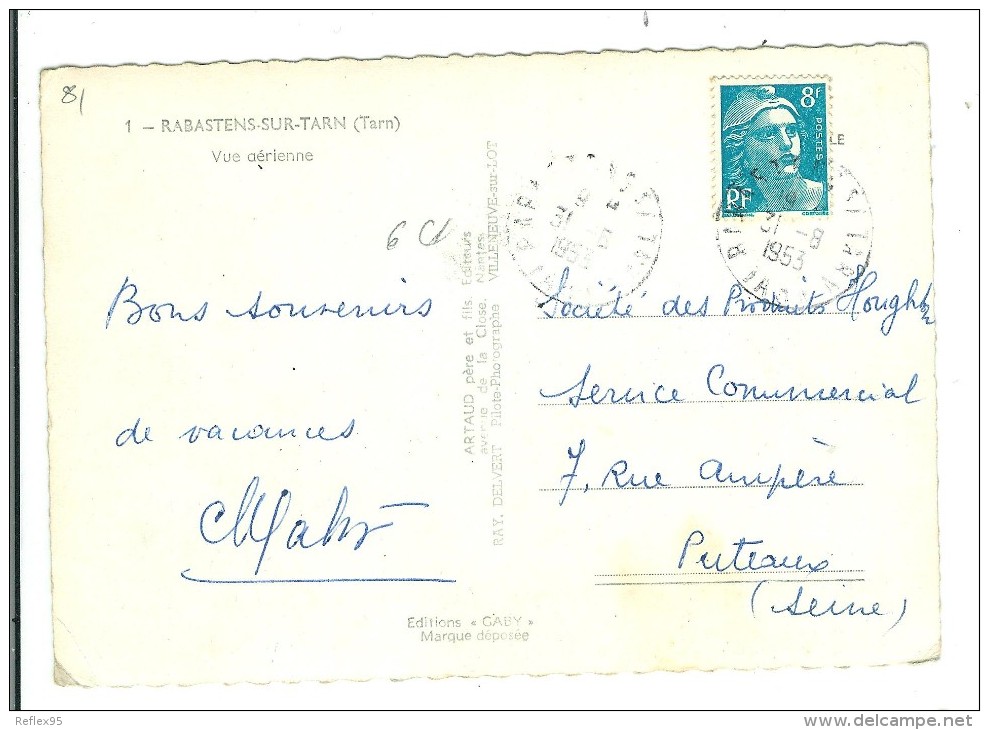 81
1 — RABASTENS-SUR-TARN (Tarn)
Vue aérienne
8f
POSTES
RF
31 -8
1953
31 -8
1953
ARTAUD père et fils Editeurs
avenue de la Close. Nantes
RAY. DELVERT Pilote-Photographe VILLENEUVE-sur-LOT
Bons souvenirs
de vacances
Société des Produits Houghton
Service Commercial
7, Rue Ampère
Puteaux
(Seine)
Editions « GABY »
Marque déposée
Reflex95
http://www.delcampe.net